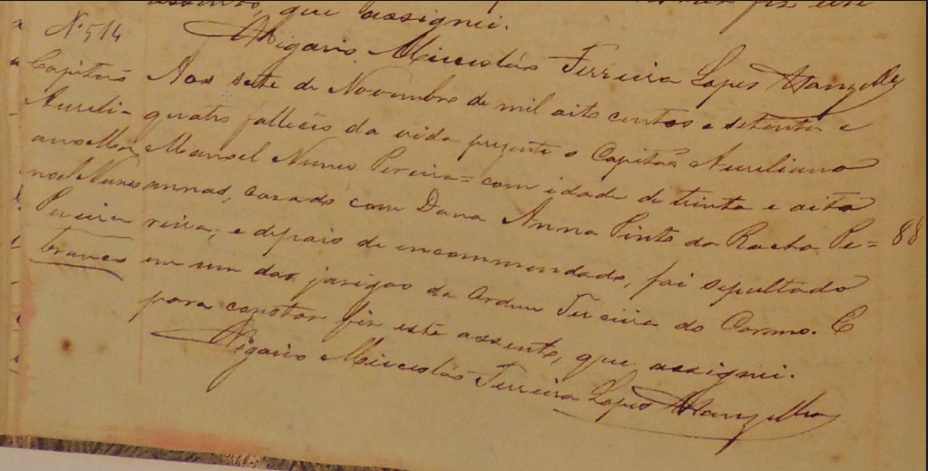 assento, que assignei.
Nº 514
Vigario Micesláo Ferreira Lopes Wanzeller
Capitão
Aureli-
ano Ma
noel Nunes
Pereira
branco
Aos sette de Novembro de mil oito centos e setenta e
quatro falleceo da vida prezente o Capitão Aureliano
Manoel Nunes Pereira = com idade de trinta e oito
annos, cazado com Dona Anna Pinto da Rocha Pe=
reira; e depois de encommendado, foi sepultado
em um dos jazigos da Ordem Terceira do Carmo. E
para constar fiz este assento, que assignei.
Vigario Micesláo Ferreira Lopes Wanzeller
88